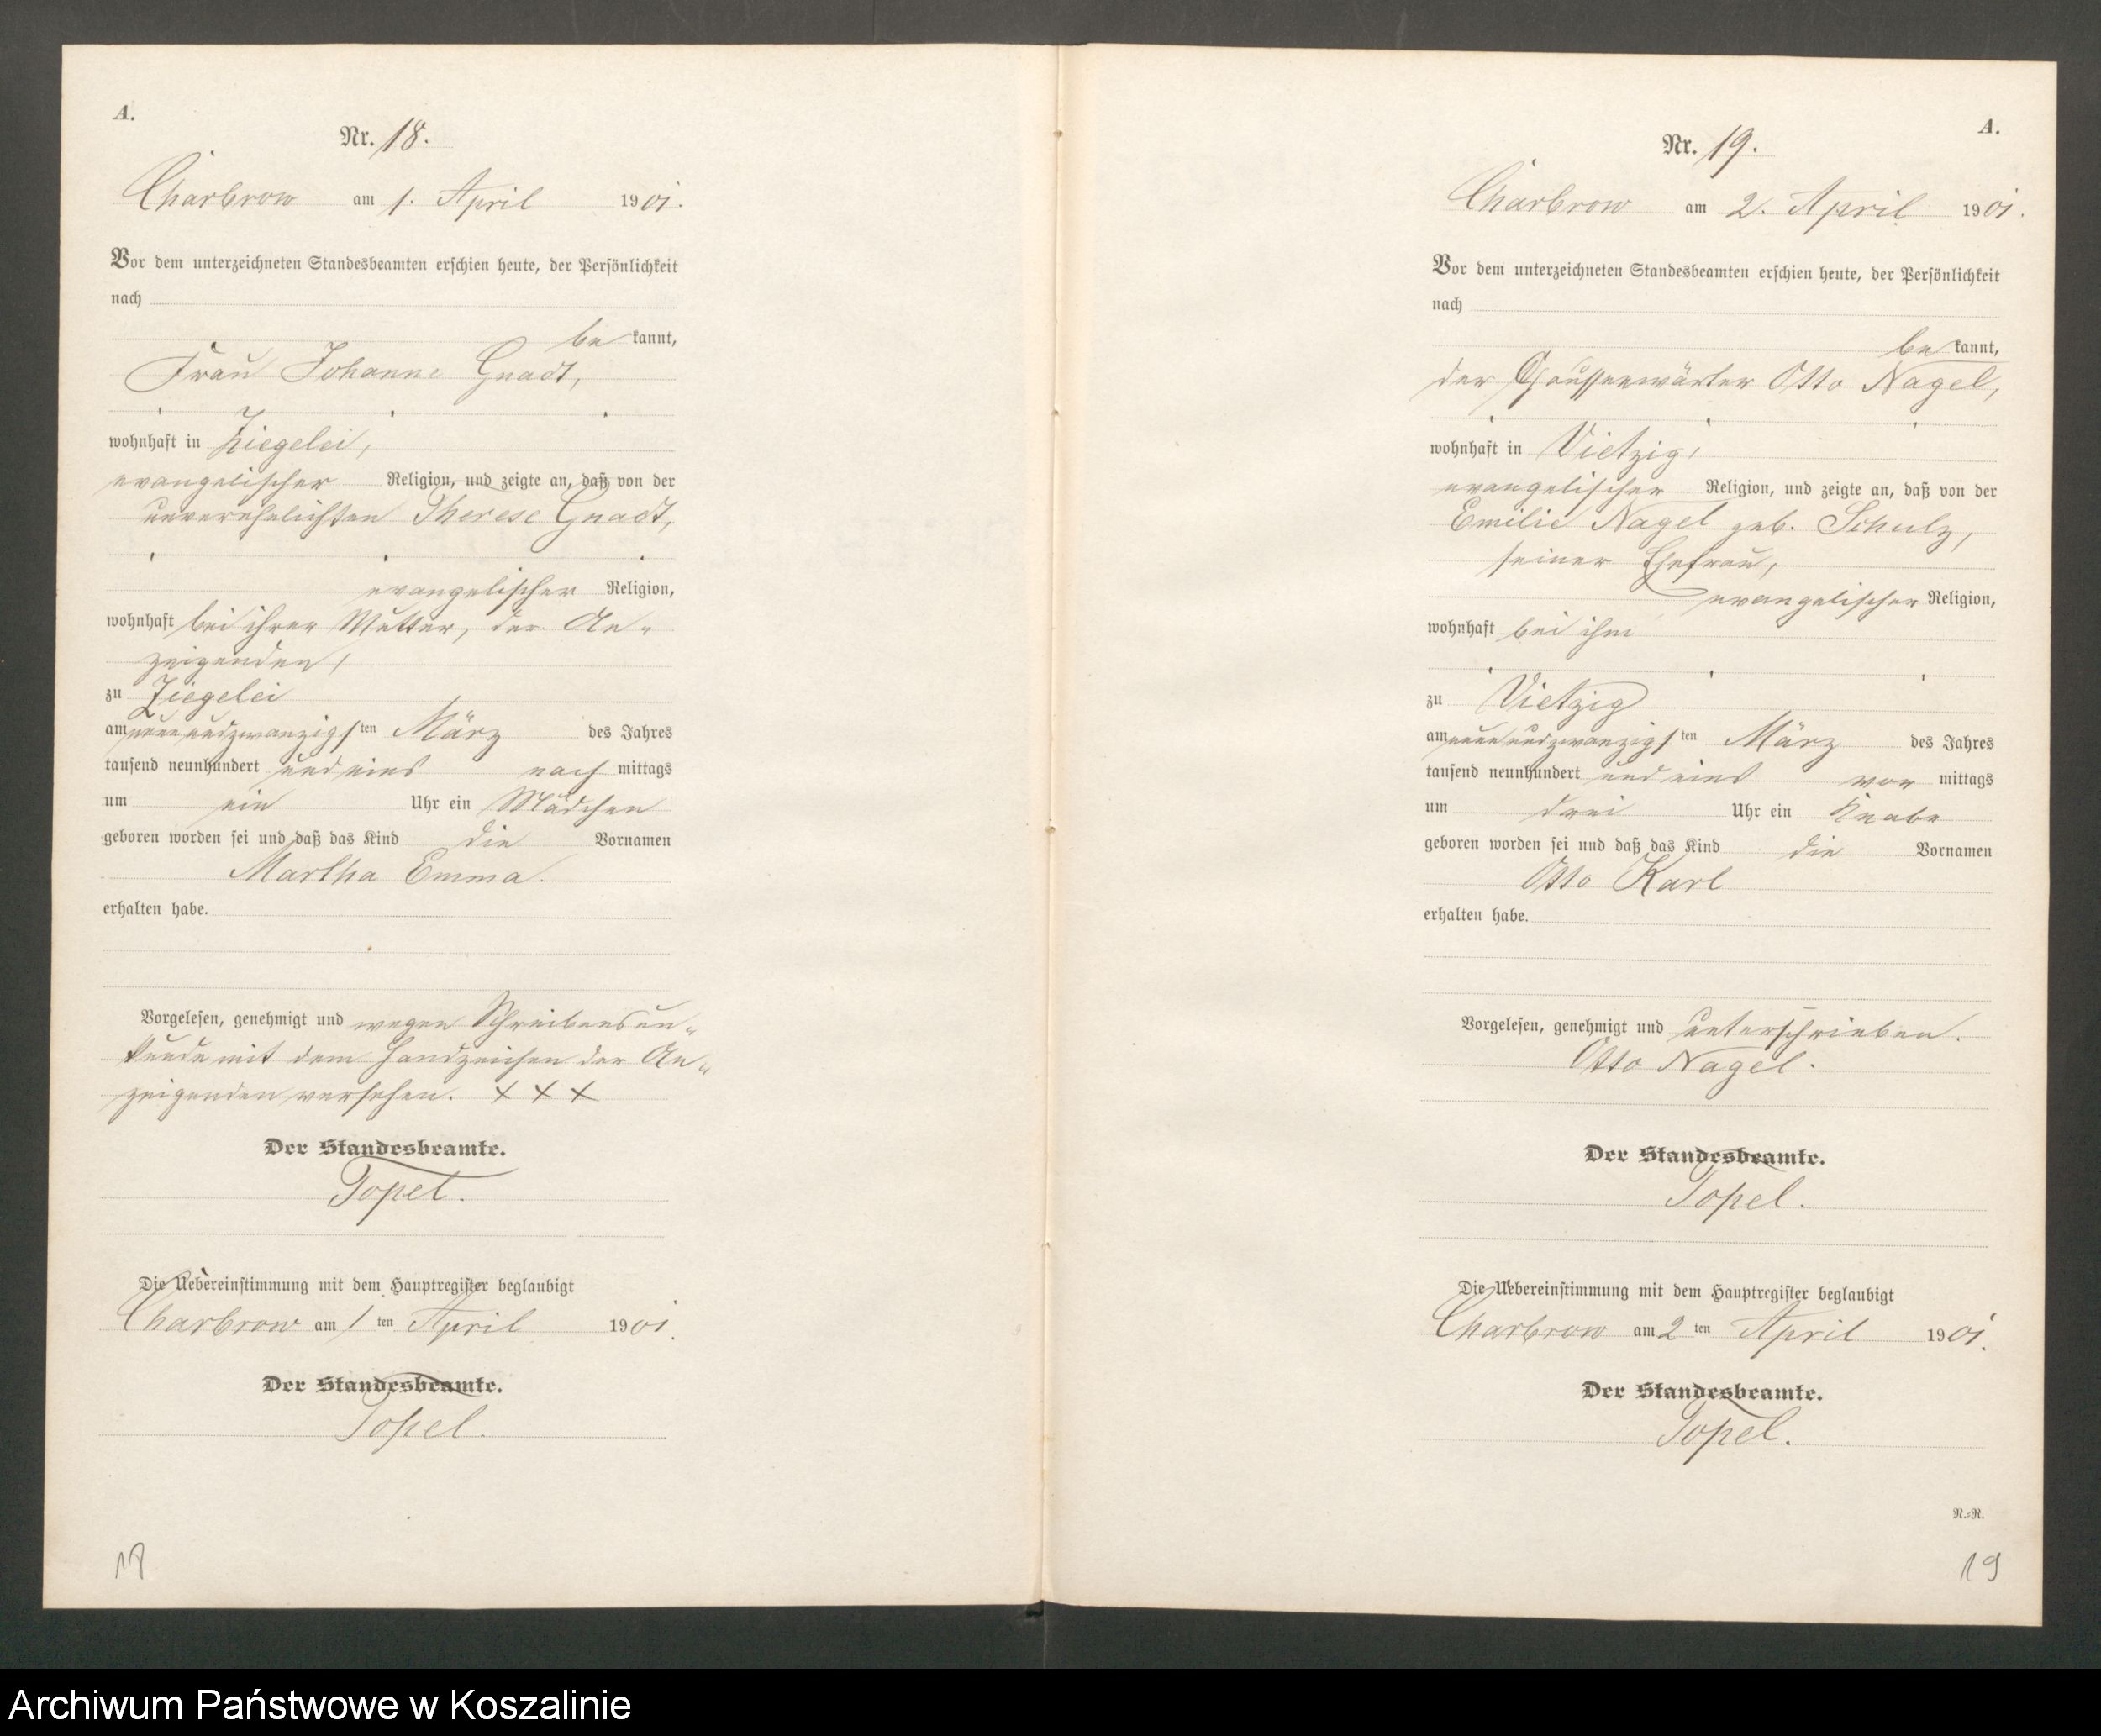 A.
Nr. 18.
Charbrow am 1. April 1901.
Vor dem unterzeichneten Standesbeamten erschien heute, der Persönlichkeit
nach
bekannt,
Frau Johanne Gnadt,
wohnhaft in Ziegelei,
evangelischer Religion, und zeigte an, daß von der
unverehelichten Therese Gnadt,
evangelischer Religion,
wohnhaft bei ihrer Mutter, der An-
zeigenden,
zu Ziegelei
am neunundzwanzigsten März des Jahres
tausend neunhundert und eins nachmittags
um ein Uhr ein Mädchen
geboren worden sei und daß das Kind die Vornamen
Martha Emma.
erhalten habe.
Vorgelesen, genehmigt und wegen Schreibensun-
kunde mit dem Handzeichen der An-
zeigenden versehen. XXX
Der Standesbeamte.
Topel.
Die Uebereinstimmung mit dem Hauptregister beglaubigt
Charbrow am 1ten April 1901.
Der Standesbeamte.
Topel.
18
A.
Nr. 19.
Charbrow am 2. April 1901.
Vor dem unterzeichneten Standesbeamten erschien heute, der Persönlichkeit
nach
bekannt,
der Chausseewärter Otto Nagel,
wohnhaft in Vietzig,
evangelischer Religion, und zeigte an, daß von der
Emilie Nagel geb. Schulz,
seiner Ehefrau,
evangelischer Religion,
wohnhaft bei ihm
zu Vietzig
am neunundzwanzigsten März des Jahres
tausend neunhundert und eins vormittags
um drei Uhr ein Knabe
geboren worden sei und daß das Kind die Vornamen
Otto Karl
erhalten habe.
Vorgelesen, genehmigt und unterschrieben.
Otto Nagel.
Der Standesbeamte.
Topel.
Die Uebereinstimmung mit dem Hauptregister beglaubigt
Charbrow am 2ten April 1901.
Der Standesbeamte.
Topel.
N.-N.
19
Archiwum Państwowe w Koszalinie